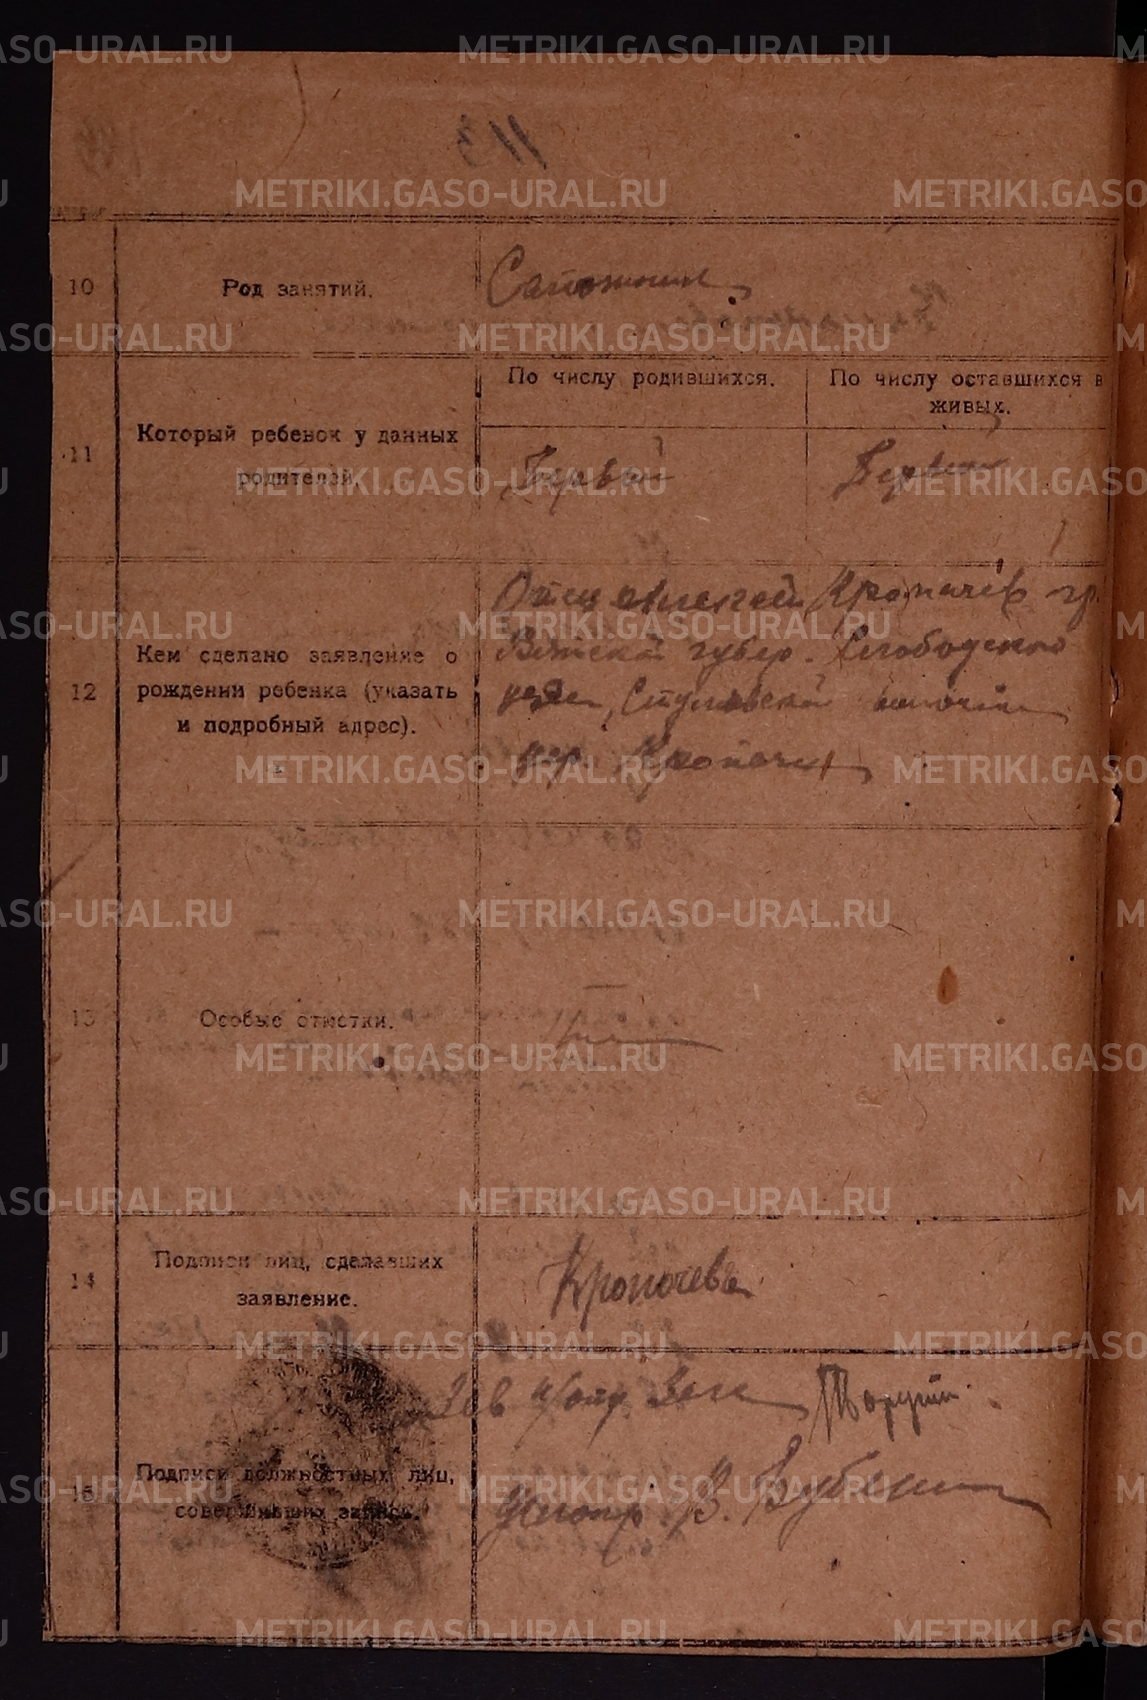 113
10
Род занятий.
Сапожник
11
Который ребенок у данных
родителей.
По числу родившихся.
По числу оставшихся в
живых.
Первый
Первый
12
Кем сделано заявление о
рождении ребенка (указать
и подробный адрес).
Отец Алексей Кропачев гр.
Вятской губер. Слободского
уезда, Стуловской волости
дер. Кропачи
13
Особые отметки.
14
Подписи лиц, сделавших
заявление.
Кропачевъ
15
Подписи должностных лиц,
совершивших запись.
Зав
В.
METRIKI.GASO-URAL.RU